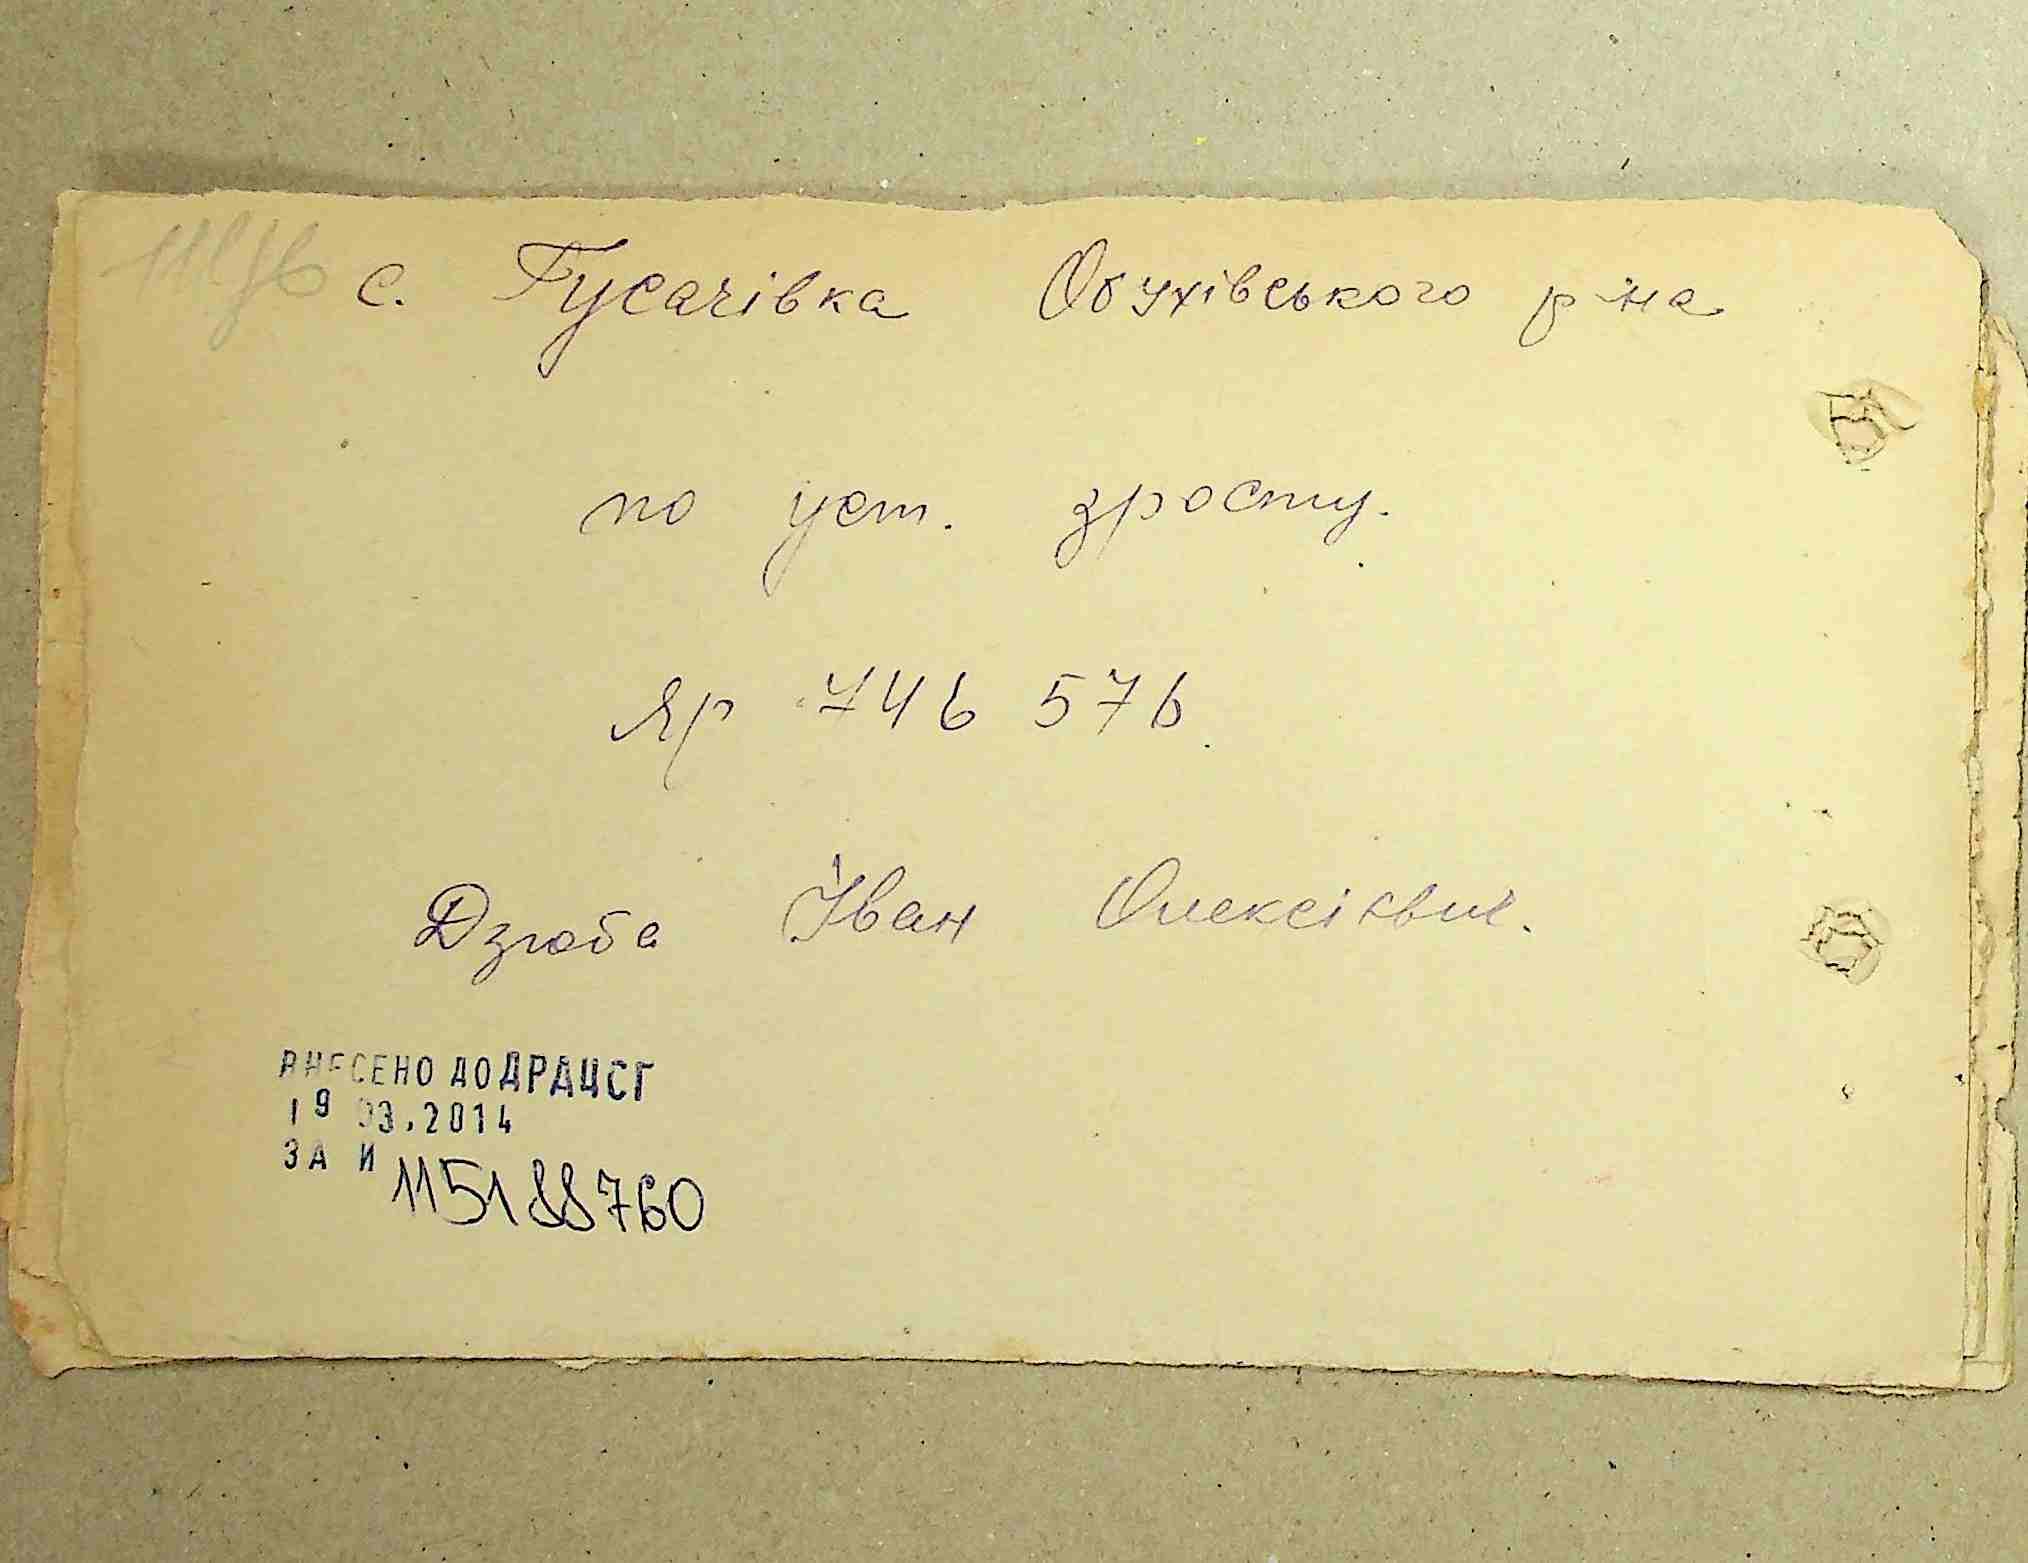 с. Гусачівка Обухівського р-на
по уст. зросту.
ЯР 746 576
Дзюба Іван Олексієвич.
ВНЕСЕНО ДО ДРАЦСГ
19 03.2014
ЗА И 115188760